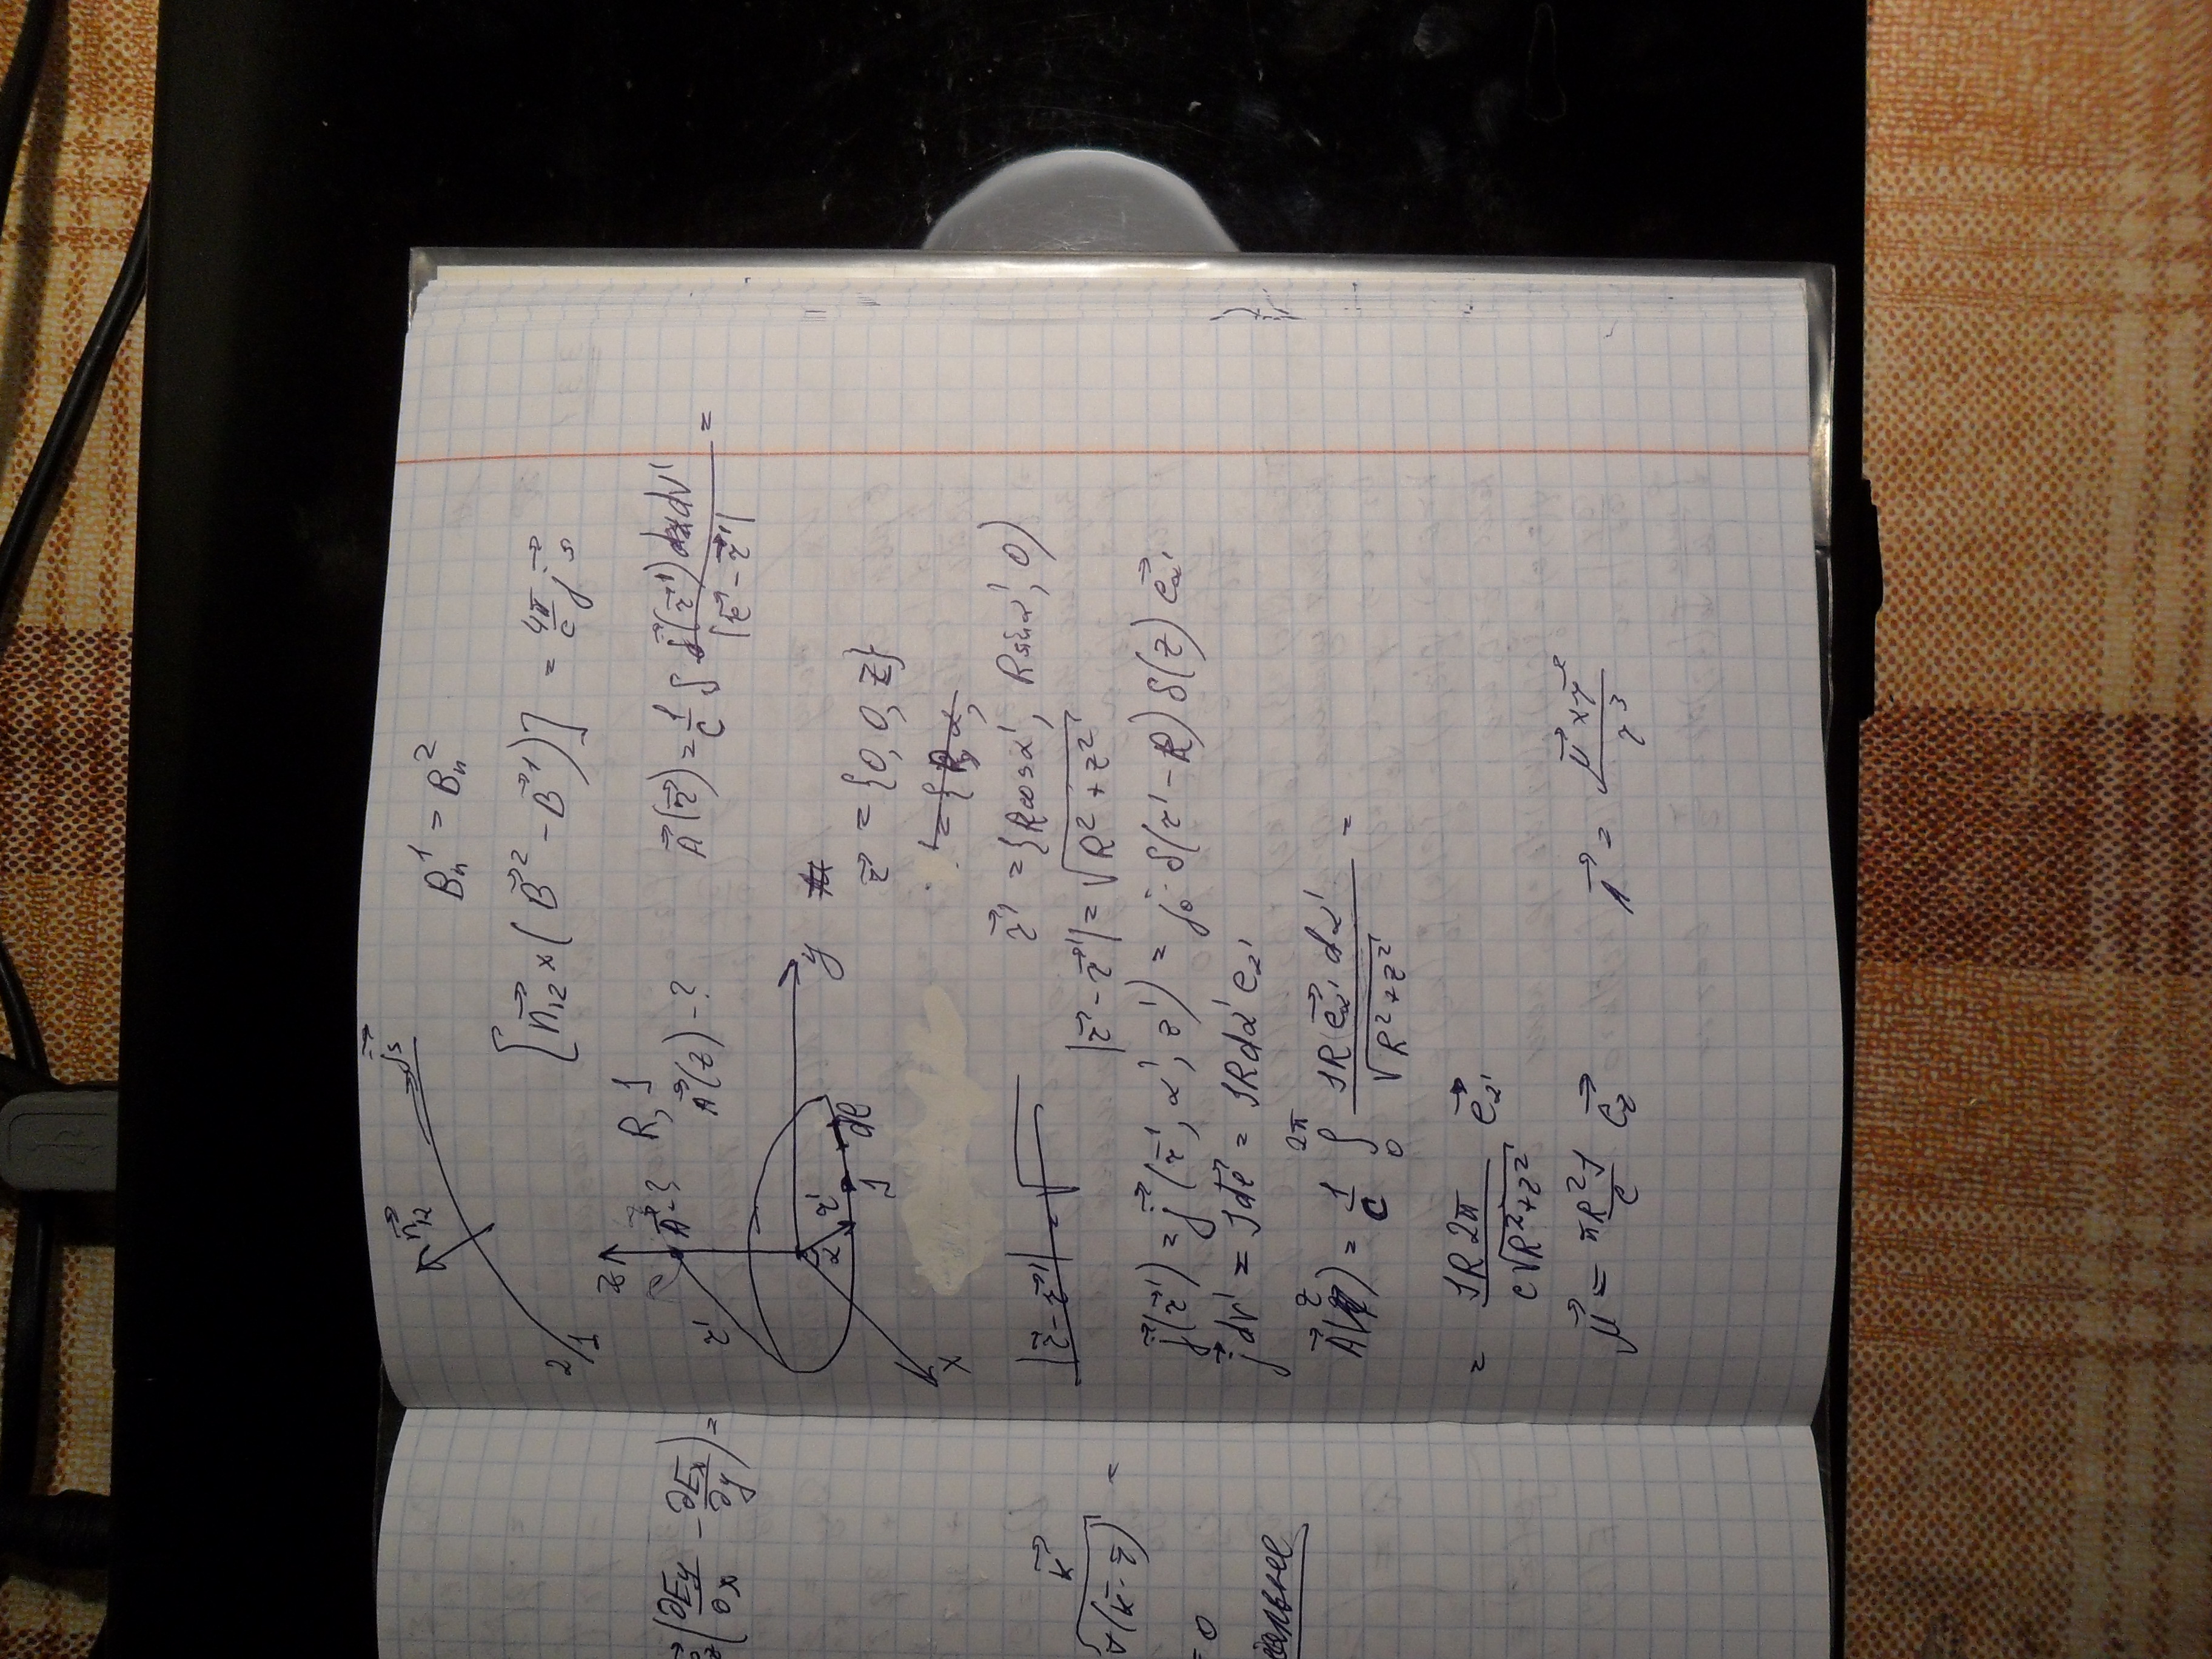 j⃗ₛ
n⃗₁₂
2/1
Bₙ¹ = Bₙ²
[n⃗₁₂ × (B⃗² − B⃗¹)] = 4π/c j⃗ₛ
z
A⃗-? R, J
A⃗(z) - ?
A⃗(r⃗) = 1/c ∫ j⃗(r⃗') dV' / |r⃗ − r⃗'| =
r'
y
α
r'
J
dl
x
r⃗ = {0, 0, z}
r⃗' = {R cos α', R sin α', 0)
|r⃗ − r⃗'| = √
|r⃗ − r⃗'| = √(R² + z²)
j⃗(r⃗') = j⃗(r', α', z') = j₀ · δ(r' − R) δ(z) e⃗α'
j⃗ dV' = J dl⃗ = JR dα' eα'
A⃗(z) = 1/c ∫₀^2π JR e⃗α' dα' / √(R² + z²) =
= JR 2π / c√(R² + z²) e⃗α'
μ⃗ = πR²J/c e⃗z
A⃗ = μ⃗ × r⃗ / r³
(∂Ey/∂x − ∂Ex/∂y) =
k⃗
= 0